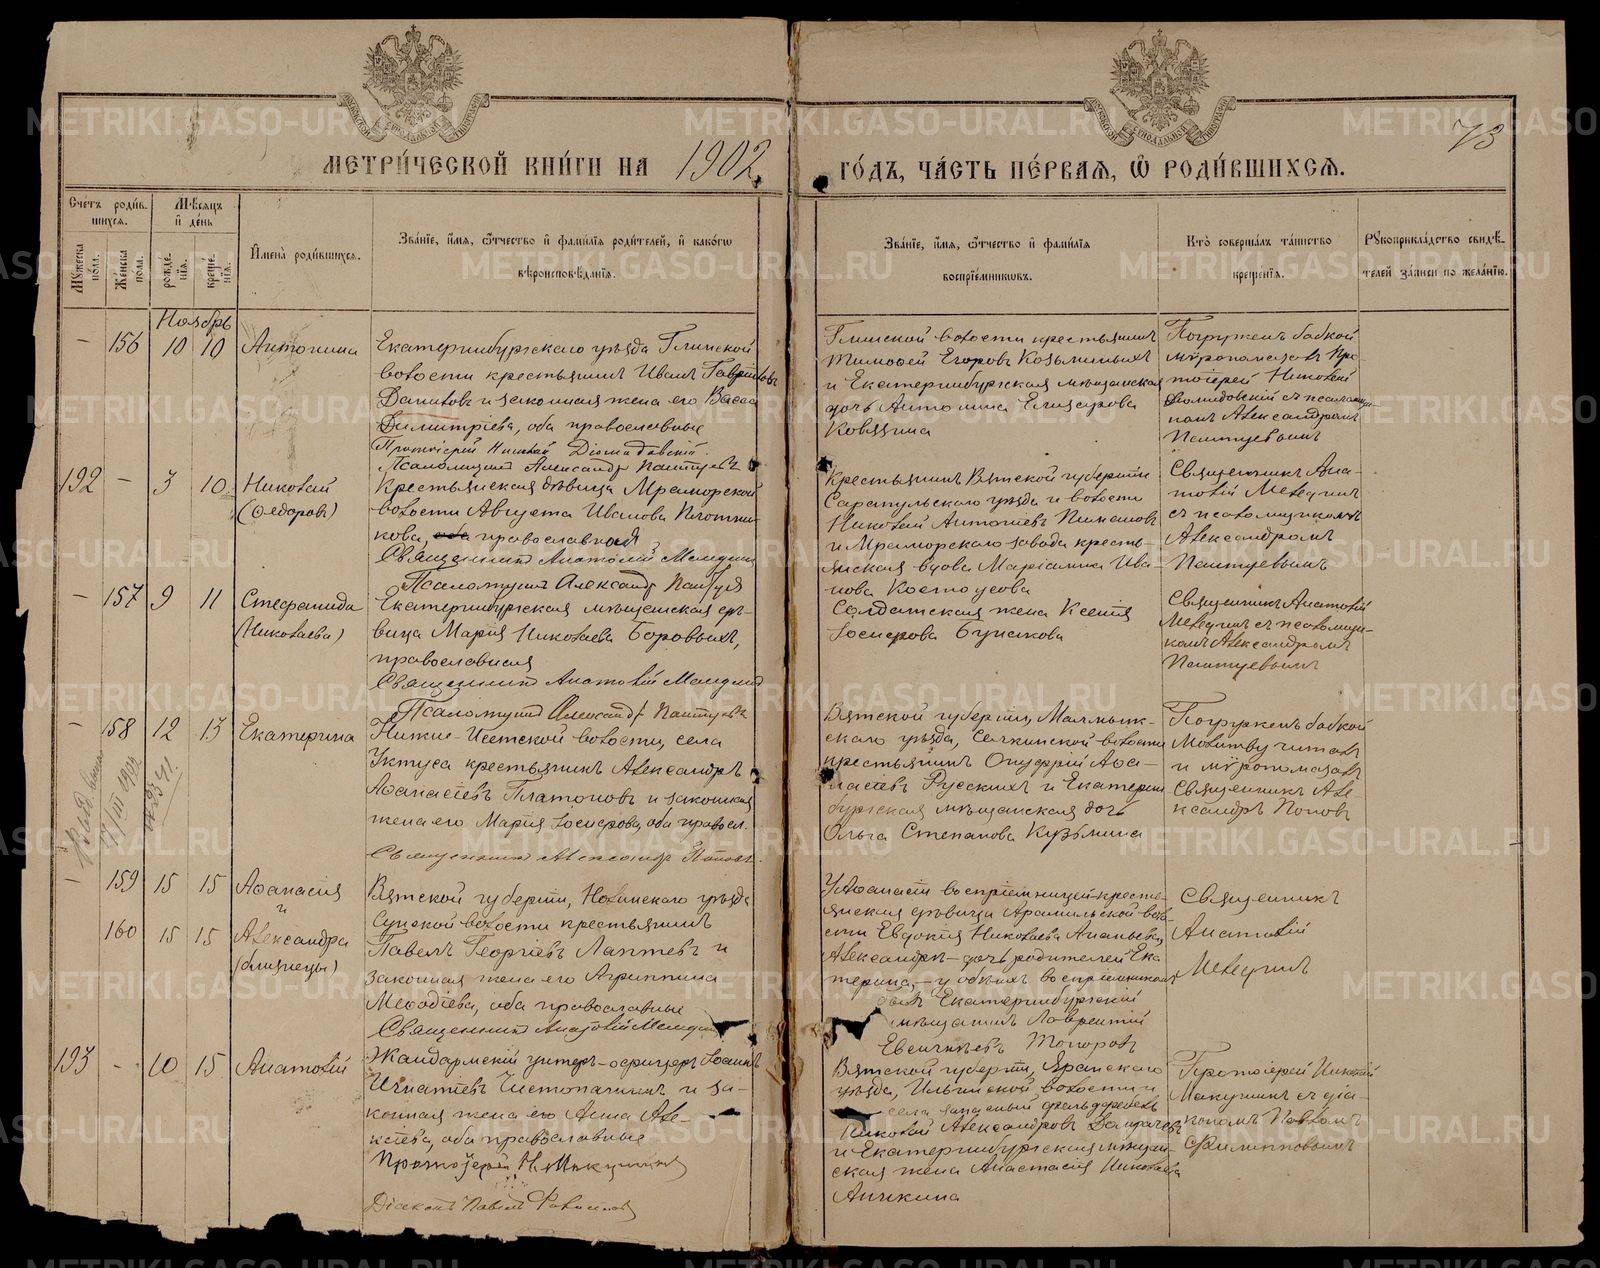 МЕТРИ́ЧЕСКОЙ КНИ́ГИ НА 1902
ГО́ДЪ, ЧА́СТЬ ПЕ́РВАЯ, Ѡ РОДИ́ВШИХСЯ.
73
Сче́тъ роди́в-
шихся.
Мѣ́сяцъ
и де́нь
Му́жеска пола.
Же́нска пола.
рожде́-
нія.
креще́-
нія.
Имена̀ роди́вшихся.
Зва́ніе, и́мя, о́тчество и фами́лія роди́телей, и како́гѡ
вѣроисповѣ́данія.
Зва́ніе, и́мя, о́тчество и фами́лія
воспріе́мниковъ.
Кто̀ соверша́лъ та́инство
креще́нія.
Рукоприкла́дство свидѣ́-
телей за́писи по жела́нію.
Ноябрь
- 156 10 10 Антонина
Екатеринбургскаго уѣзда Глинской
волости крестьянинъ Иванъ Гавриловъ
Даниловъ и законная жена его Васса
Димитріева, оба православные
Протоіерей Николай Діомидовскій.
Псаломщикъ Александръ Пантуевъ
Глинской волости крестьянинъ
Тимофей Егоровъ Козьминыхъ
и Екатеринбургская мѣщанская
дочь Антонина Елизарова
Ковязина
Погруженъ бабкой
мѵропомазовъ Про
тоіерей Николай
Діомидовскій съ псаломщи-
комъ Александромъ
Пантуевымъ
192 - 3 10 Николай
(Федоровъ)
Крестьянская дѣвица Мраморской
волости Августа Иванова Плотни-
кова, оба православная
Священникъ Анатолій Мамедчинъ
Псаломщикъ Александръ Пантуевъ
Крестьянинъ Вятской губерніи
Сарапульскаго уѣзда и волости
Николай Антоніевъ Пименовъ
и Мраморскаго завода кресть-
янская вдова Маріанна Ива-
нова Костоусова
Священникъ Ана-
толій
съ псаломщикомъ
Александромъ
Пантуевымъ
- 157 9 11 Стефанида
(Николаева)
Екатеринбургская мѣщанская дѣ-
вица Марія Николаева Боровыхъ,
православная
Священникъ Анатолій
Псаломщикъ Александръ Пантуевъ
Солдатская жена Ксенія
Іосифова Бунакова
Священникъ Анатолій
съ псаломщи-
комъ Александромъ
Пантуевымъ
- 158 12 13 Екатерина
Нижне-Исетской волости, села
Уктуса крестьянинъ Александръ
Аѳанасіевъ Платоновъ и законная
жена его Марія Іосифова, оба правосл.
Священникъ Александръ Поповъ.
Вятской губерніи, Малмыж-
скаго уѣзда, волости
крестьянинъ Онуфрій Аѳа-
насіевъ Русскихъ и Екатерин
бургская мѣщанская дочь
Ольга Степанова Кузьмина
Погруженъ бабкой
Молитву читалъ
и мѵропомазалъ
Священникъ Але-
ксандръ Поповъ
- 159 15 15 Аѳанасія
и
160 15 15 Александра
(близнецы)
Вятской губерніи, Нолинскаго уѣзда
Сунской волости крестьянинъ
Павелъ Георгіевъ Лаптевъ и
законная жена его Агриппина
Меѳодіева, оба православные
Священникъ Анатолій
У Аѳанасіи воспріемницей кресть-
янская дѣвица Арамильской воло-
сти Евдокія Николаева Ананьева,
Александры - дочь родителей Ека
терина, - у обѣихъ воспріемникомъ
былъ Екатеринбургскій
мѣщанинъ Лаврентій
Топоровъ
Священникъ
Анатолій
193 - 10 15 Анатолій
Жандармскій унтеръ-офицеръ Іоаннъ
Игнатіевъ и за-
конная жена его Анна Але-
ксіева, оба православные
Протоіерей Н. Макушинъ
Діаконъ Павелъ
Вятской губерніи, Яранскаго
уѣзда, Ильинской волости и
села запасный фельдфебель
Николай Александровъ
и Екатеринбургская мѣщан-
ская жена Анастасія Николаева
Аникина
Протоіерей Николай
Макушинъ съ діа-
кономъ Павломъ
METRIKI.GASO-URAL.RU